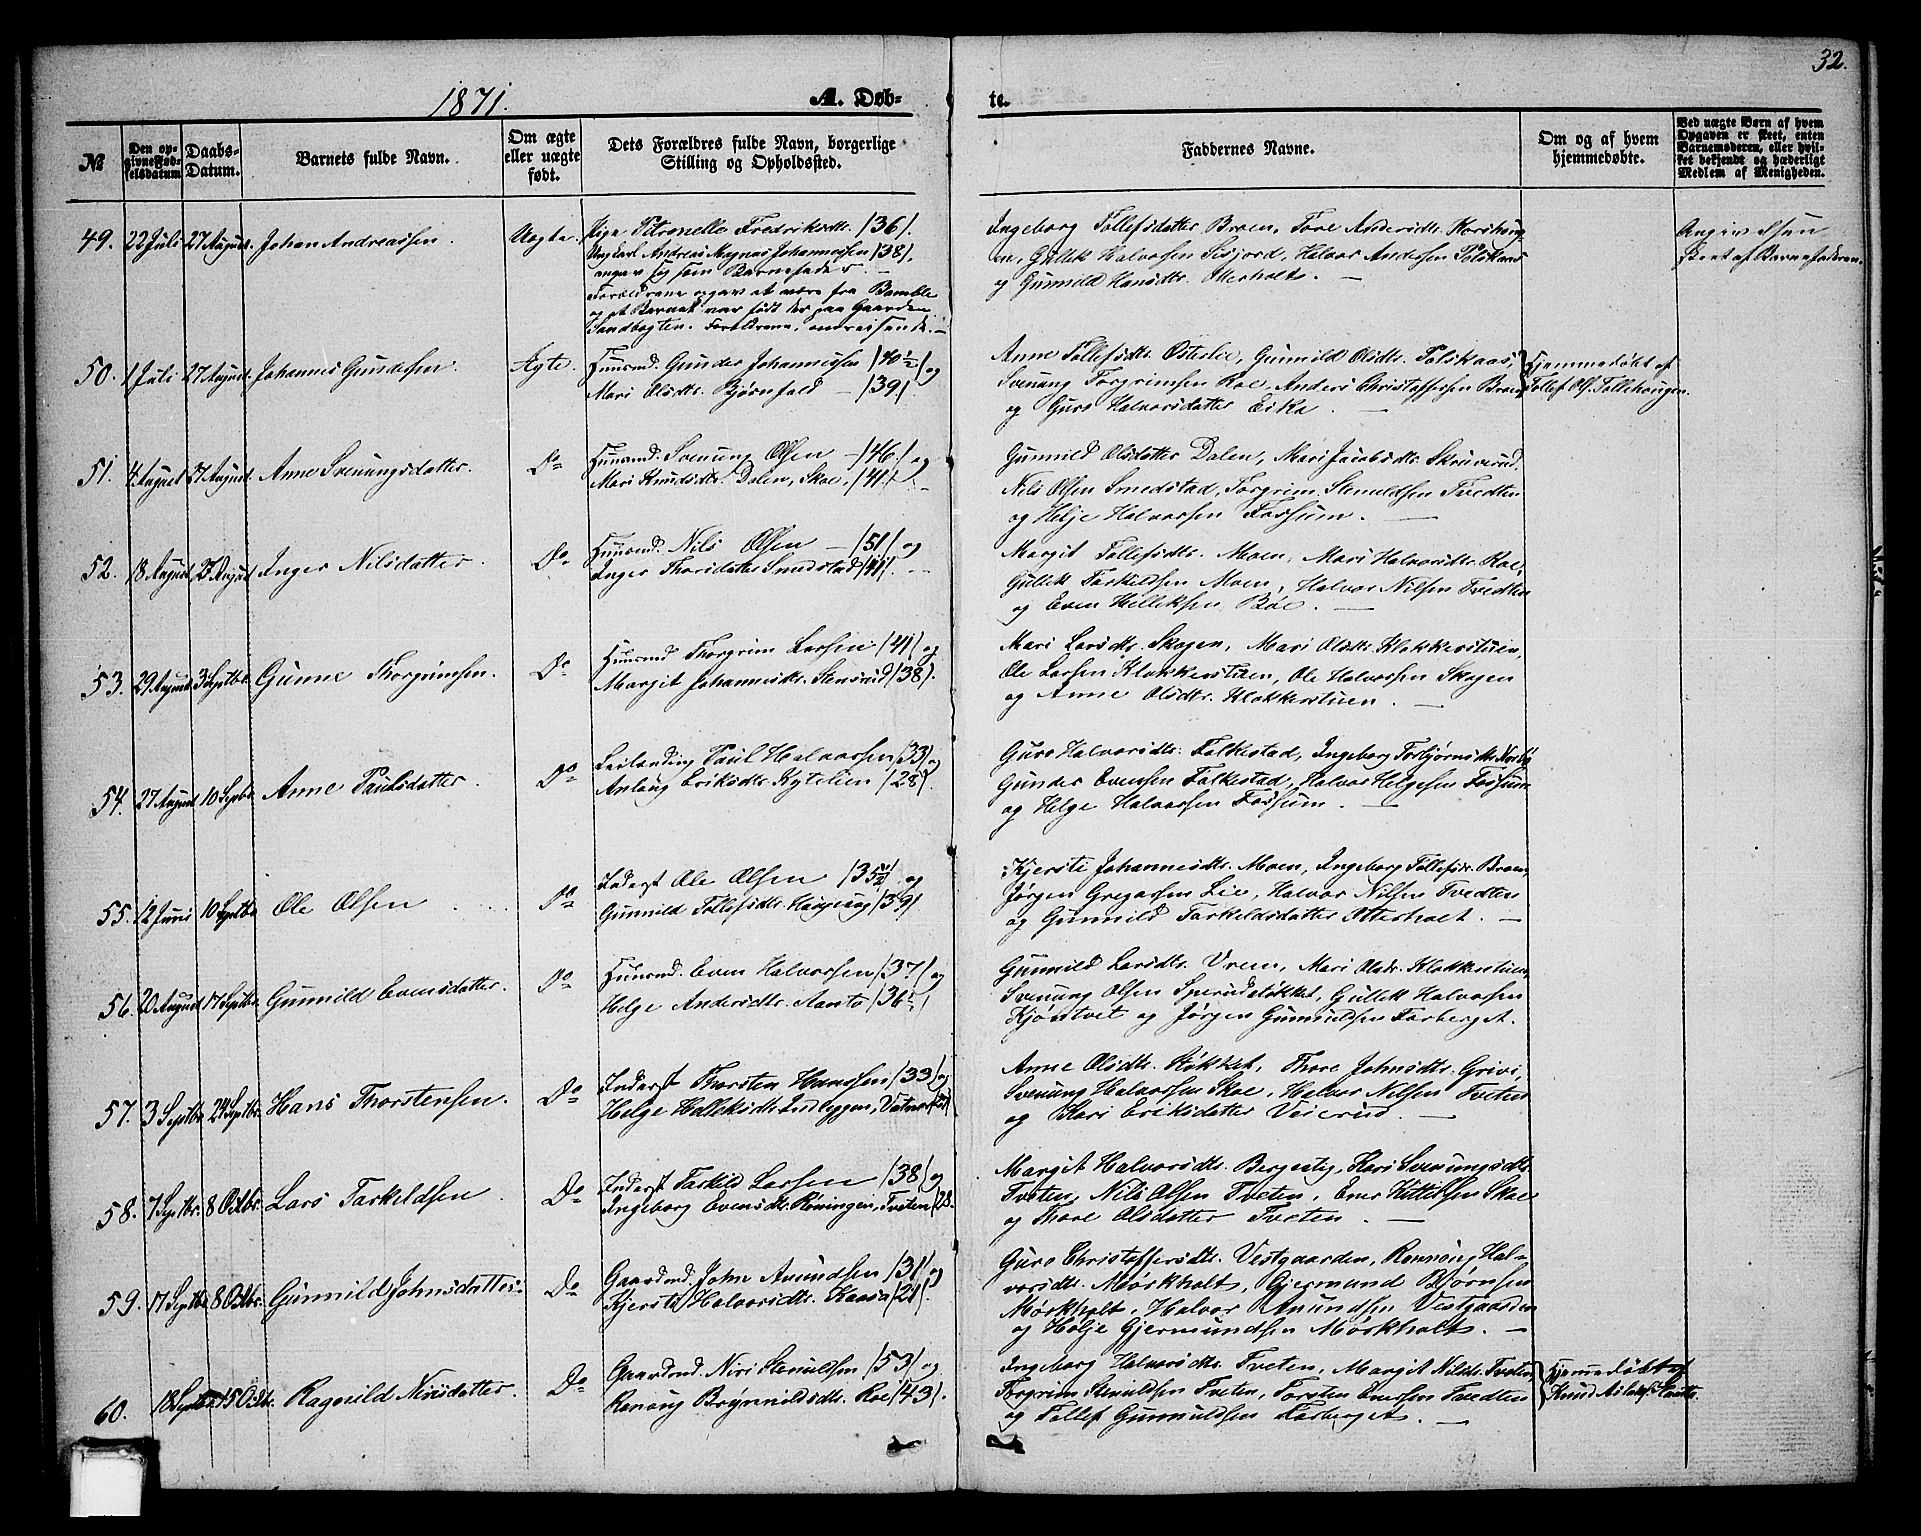 32.
1871.
A. Døb-
te.
№
Den op-
givne Fød-
selsdatum
Daabs-
Datum.
Barnets fulde Navn.
Om ægte
eller uægte
født.
Dets Forældres fulde Navn, borgerlige
Stilling og Opholdssted.
Faddernes Navne.
Om og af hvem
hjemmedøbte.
Ved uægte Børn af hvem
Opgaven er skeet, enten
Barnemoderen, eller hvil-
ket bekjendt og hæderligt
Medlem af Menigheden.
49. 22 Juli 27 August. Johan Andreassen. Uægte.
Pige Petronelle Fredriksdtr. /36/.
Ungkarl Andreas Magnus Johannessen /38/,
angav sig som Barnefader. —
Forældrene opgav at være fra Bamble
og at Barnet var født der paa Gaarden
Sandbogten. Forældrene, omreisende. —
Ingeborg Tollefsdatter Broen, Tore Andersdtr.
Gullik Halvorsen Sisjord, Halvor Andersen
og Gunnild Hansdtr. Otterholt. —
skeet af Barnefaderen.
50. 1 Juli 27 August. Johannes Gundersen. Ægte.
Huusmd. Gunder Johannessen /40½/ og
Mari Olsdtr. Bjørnfald — /39/
Anne Tollefsdtr. Osterlie, Gunnild Olsdtr. Folskaas,
Svenung Torgrimsen Roe, Anders Christoffersen Broen
og Guro Halvorsdatter Eika. —
Hjemmedøbt af
Tollef Ols. Follehougen.
51. 4 August 27 August. Anne Svenungsdatter. Do
Huusmd. Svenung Olsen — /46/ og
Mari Knudsdtr. Dalen, Skoe, /41/
Gunnild Olsdatter Dalen, Mari Jacobsdtr. Skruverud.
Nils Olsen Smedstad, Torgrim Stenuldsen Tvedten
og Helje Halvorsen Fossum. —
52. 18 August 27 August Inger Nilsdatter. Do
Huusmd. Nils Olsen — /51/ og
Inger Thorsdatter Smedstad /41/.
Margit Tollefsdtr. Moen, Mari Halvorsdtr. Roe,
Gullik Tarkeldsen Moen, Halvor Nilsen Tvedten
og Even Helleksen Bøe. —
53. 29 August 3 Septbr. Gunne Thorgrimsen. Do
Huusmd Thorgrim Larsen /41/ og
Margit Johannesdtr. Stensrud /38/.
Mari Larsdtr. Skogen, Mari Olsdtr. Klokkerstuen,
Ole Larsen Klokkerstuen, Ole Halvorsen Skogen
og Anne Olsdtr. Klokkerstuen. —
54. 27 August 10 Septbr. Anne Paulsdatter. Do
Leilænding Paul Halvorsen /33/ og
Anlaug Eriksdtr. Kytelien /28/.
Guro Halvorsdtr. Folkestad, Ingeborg Torbjørnsdtr.
Gunder Evensen Folkestad, Halvor Helgesen Fossum
og Helge Halvorsen Fossum. —
55. 12 Juni 10 Septbr. Ole Olsen Do
Inderst Ole Olsen /35½/ og
Gunnild Tollefsdtr. Haugeng /39/
Kjersti Johannesdtr. Moen, Ingeborg Tollefsdr. Broen,
Jørgen Gregarsen Lie, Halvor Nilsen Tvedten
og Gunnild Tarkeldsdatter Otterholt. —
56. 20 August 17 Septbr. Gunnild Evensdatter. Do
Huusmd. Even Halvorsen /37/ og
Helge Andersdtr. Aasto /36½/
Gunnild Larsdtr. Vrem, Mari Olsdr. Klokkerstuen,
Svenung Olsen Sperudsløkket, Gullik Halvorsen
Kjøntvet og Jørgen Gunnuldsen Farberget.
57. 3 Septbr 24 Septbr. Hans Thorstensen. Do
Inderst Thorsten Hansen /33/ og
Helge Helleksdtr. Indleggen, Vatnar /25/
Anne Olsdtr. Støkket, Thore Johnsdtr. Grivi,
Svenung Halvorsen Skoe, Halvor Nilsen Tveten
og Mari Eriksdatter Veierud. —
58. 7 Septbr. 8 Octbr. Lars Tarkeldsen. Do
Inderst Tarkild Larsen /38/ og
Ingeborg Evensdtr. Røningen, Tveten /28.
Margit Halvorsdtr. Bergestig, Kari Svenungsdtr.
Tveten, Nils Olsen Tveten, Even Kittilsen Skoe
og Thore Olsdatter Tveten. —
59. 17 Septbr 8 Octbr. Gunnild Johnsdatter. Do
Gaardmd. John Amundsen /31/ og
Kjersti Halvorsdtr. Kaasa /21/.
Guro Christoffersdtr. Vestgaarden, Rønnoug Hal-
vorsdtr. Mørkholt, Gjermund Bjørnsen
Mørkholt, Halvor Amundsen Vestgaarden
og Helje Gjermundsen Mørkholt. —
60. 18 Septbr 15 Octbr. Ragnild Nirisdatter. Do
Gaardmd. Niri Stenuldsen /53/ og
Rønoug Brynnildsdtr. Roe /43/.
Ingeborg Halvorsdtr. Tveten, Margit Nilsdtr. Tveten,
Torgrim Stenuldsen Tveten, Torsten Evensen Tvedten
og Tollef Gunnuldsen Farberget. —
Hjemmedøbt af
Knud Aslaks.